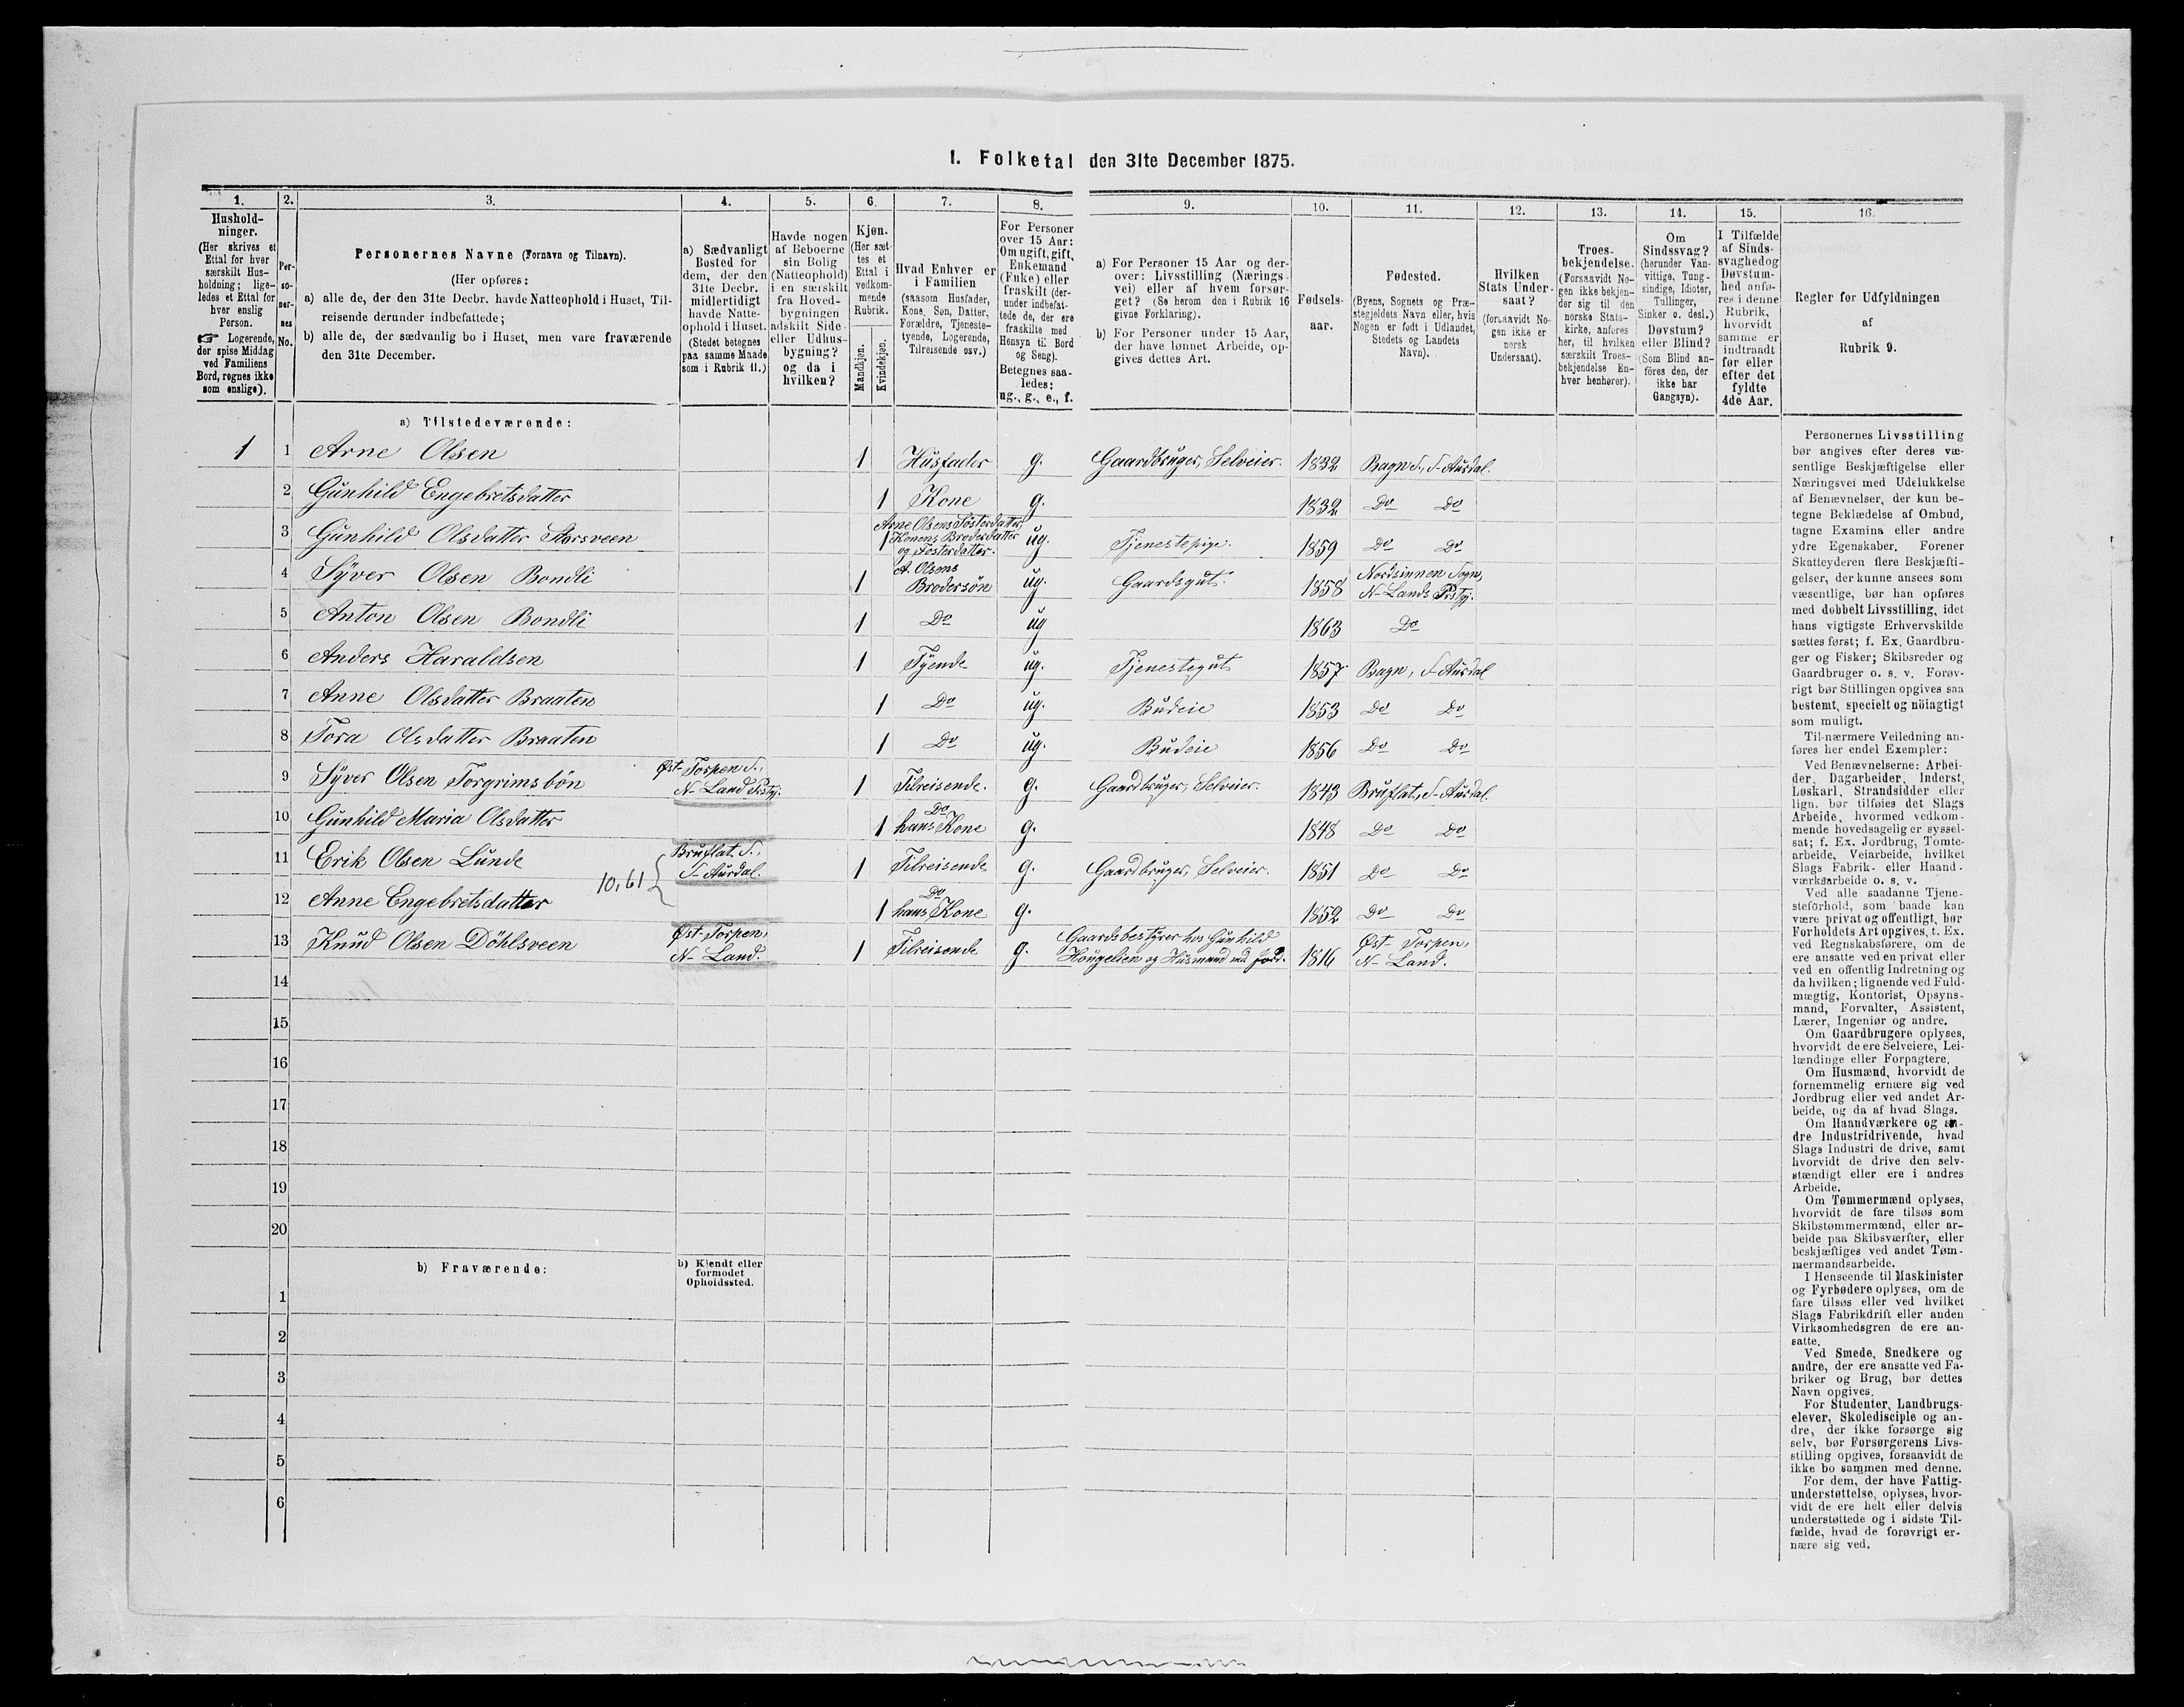 I. Folketal den 31te December 1875.
1. 2. 3. 4. 5. 6. 7. 8. 9. 10. 11. 12. 13. 14. 15. 16.
Hushold-
ninger.
(Her skrives et
Ettal for hver
særskilt Hus-
holdning; lige-
ledes et Ettal for
hver enslig
Person.
☞ Logerende,
der spise Middag
ved Familiens
Bord, regnes ikke
som enslige).
Per-
so-
ner-
nes
No.
Personernes Navne (Fornavn og Tilnavn).
(Her opføres:
a) alle de, der den 31te Decbr. havde Natteophold i Huset, Til-
reisende derunder indbefattede;
b) alle de, der sædvanlig bo i Huset, men vare fraværende
den 31te December.
a) Sædvanligt
Bosted for
dem, der den
31te Decbr.
midlertidigt
havde Natte-
ophold i Huset.
(Stedet betegnes
paa samme Maade
som i Rubrik 11.)
Havde nogen
af Beboerne
sin Bolig
(Natteophold)
i en særskilt
fra Hoved-
bygningen
adskilt Side-
eller Udhus-
bygning?
og da i
hvilken?
Kjøn.
(Her sæt-
tes et
Ettal i
vedkom-
mende
Rubrik.
Mandkjøn.
Kvindekjøn.
Hvad Enhver er
i Familien
(saasom Husfader,
Kone, Søn, Datter,
Forældre, Tjeneste-
tyende, Logerende,
Tilreisende osv.)
For Personer
over 15 Aar:
Om ugift, gift,
Enkemand
(Enke) eller
fraskilt (der-
under indbefat-
tede de, der ere
fraskilte med
Hensyn til Bord
og Seng).
Betegnes saa-
ledes:
ug., g., e., f.
a) For Personer 15 Aar og der-
over: Livsstilling (Nærings-
vei) eller af hvem forsør-
get? (Se herom den i Rubrik 16
givne Forklaring).
b) For Personer under 15 Aar,
der have lønnet Arbeide, op-
gives dettes Art.
Fødsels-
aar.
Fødested.
(Byens, Sognets og Præ-
stegjeldets Navn eller, hvis
Nogen er født i Udlandet,
Stedets og Landets
Navn).
Hvilken
Stats Under-
saat?
(forsaavidt No-
gen ikke er
norsk
Undersaat).
Troes-
bekjendelse.
(Forsaavidt No-
gen ikke bekjen-
der sig til den
norske Stats-
kirke, anføres
her, til hvilken
særskilt Troes-
bekjendelse En-
hver henhører).
Om
Sindssvag?
(herunder Van-
vittige, Tung-
sindige, Idioter,
Tullinger,
Sinker o. desl.)
Døvstum?
eller Blind?
(Som Blind an-
føres den, der
ikke har
Gangsyn).
I Tilfælde
af Sinds-
svaghed og
Døvstum-
hed anfø-
res i denne
Rubrik,
hvorvidt
samme er
indtraadt
før eller
efter det
fyldte
4de Aar.
Regler for Udfyldningen
af
Rubrik 9.
a) Tilstedeværende:
1 1 Arne Olsen 1 Husfader g. Gaardbruger, Selveier. 1832 Bagn S., S-Aurdal.
2 Gunhild Engebretsdatter 1 Kone g. 1832 Do Do
3 Gunhild Olsdatter Storsveen 1 Arne Olsens Søsterdatter,
Konens Broderdatter
og Fosterdatter. ug. Tjenestepige. 1859 Do Do
4 Syver Olsen Bondli 1 A. Olsens
Brodersön ug. Gaardsgut. 1858 Nordsinnen Sogn,
N-Lands Prstgj.
5 Anton Olsen Bondli 1 Do ug 1863 Do
6 Anders Haraldsen 1 Tyende ug. Tjenestegut 1857 Bagn, S-Aurdal
7 Anne Olsdatter Braaten 1 Do ug. Budeie 1853 Do Do
8 Tora Olsdatter Braaten 1 Do ug. Budeie 1856 Do Do
9 Syver Olsen Torgrimsbön Øst-Torpen S.,
N-Land Prstgj. 1 Tilreisende. g. Gaardbruger, Selveier. 1843 Bruflat, S-Aurdal.
10 Gunhild Maria Olsdatter 1 Do
hans Kone g. 1848 Do Do
11 Erik Olsen Lunde Bruflat S.,
S-Aurdal. 1 Tilreisende g. Gaardbruger, Selveier. 1851 Do Do
10,61 {
12 Anne Engebretsdatter 1 Do
hans Kone g. 1852 Do Do
13 Knud Olsen Döhlsveen Øst-Torpen,
N-Land. 1 Tilreisende g. Gaardsbestyrer hos Gunhild
Höugelien og Husmand med Jord. 1816 Øst-Torpen,
N-Land.
14
15
16
17
18
19
20
b) Fraværende:
b) Kjendt eller
formodet
Opholdssted.
1
2
3
4
5
6
Personernes Livsstilling
bør angives efter deres væ-
sentlige Beskjæftigelse eller
Næringsvei med Udelukkelse
af Benævnelser, der kun be-
tegne Beklædelse af Ombud,
tagne Examina eller andre
ydre Egenskaber. Forener
Skatteyderen flere Beskjæfti-
gelser, der kunne ansees som
væsentlige, bør han opføres
med dobbelt Livsstilling, idet
hans vigtigste Erhvervskilde
sættes først; f. Ex. Gaardbru-
ger og Fisker; Skibsreder og
Gaardbruger o. s. v. Forøv-
rigt bør Stillingen opgives saa
bestemt, specielt og nöiagtigt
som muligt.
Til nærmere Veiledning an-
føres her endel Exempler:
Ved Benævnelserne: Arbei-
der, Dagarbeider, Inderst,
Løskarl, Strandsidder eller
lign. bør tilføies det Slags
Arbeide, hvormed vedkom-
mende hovedsagelig er syssel-
sat; f. Ex. Jordbrug, Tomte-
arbeide, Veiarbeide, hvilket
Slags Fabrik- eller Haand-
værksarbeide o. s. v.
Ved alle saadanne Tjene-
steforhold, som baade kan
være privat og offentligt, bør
Forholdets Art opgives, t. Ex.
ved Regnskabsførere, om de
ere ansatte ved en privat eller
ved en offentlig Indretning og
da hvilken; lignende ved Fuld-
mægtig, Kontorist, Opsyns-
mand, Forvalter, Assistent,
Lærer, Ingeniør og andre.
Om Gaardbrugere oplyses,
hvorvidt de ere Selveiere, Lei-
lændinge eller Forpagtere.
Om Husmænd, hvorvidt de
fornemmelig ernære sig ved
Jordbrug eller ved andet Ar-
beide, og da af hvad Slags.
Om Haandværkere og an-
dre Industridrivende, hvad
Slags Industri de drive, samt
hvorvidt de drive den selv-
stændigt eller ere i andres
Arbeide.
Om Tømmermænd oplyses,
hvorvidt de fare tilsøs som
Skibstømmermænd, eller ar-
beide paa Skibsværfter, eller
beskjæftiges ved andet Tøm-
mermandsarbeide.
I Henseende til Maskinister
og Fyrbødere oplyses, om de
fare tilsøs eller ved hvilket
Slags Fabrikdrift eller anden
Virksomhedsgren de ere an-
satte.
Ved Smede, Snedkere og
andre, der ere ansatte ved Fa-
briker og Brug, bør dettes
Navn opgives.
For Studenter, Landbrugs-
elever, Skoledisciple og an-
dre, der ikke forsørge sig
selv, bør Forsørgerens Livs-
stilling opgives, forsaavidt de
ikke bo sammen med denne.
For dem, der have Fattig-
understøttelse, oplyses, hvor-
vidt de ere helt eller delvis
understøttede og i sidste Til-
fælde, hvad de forøvrigt er-
nære sig ved.